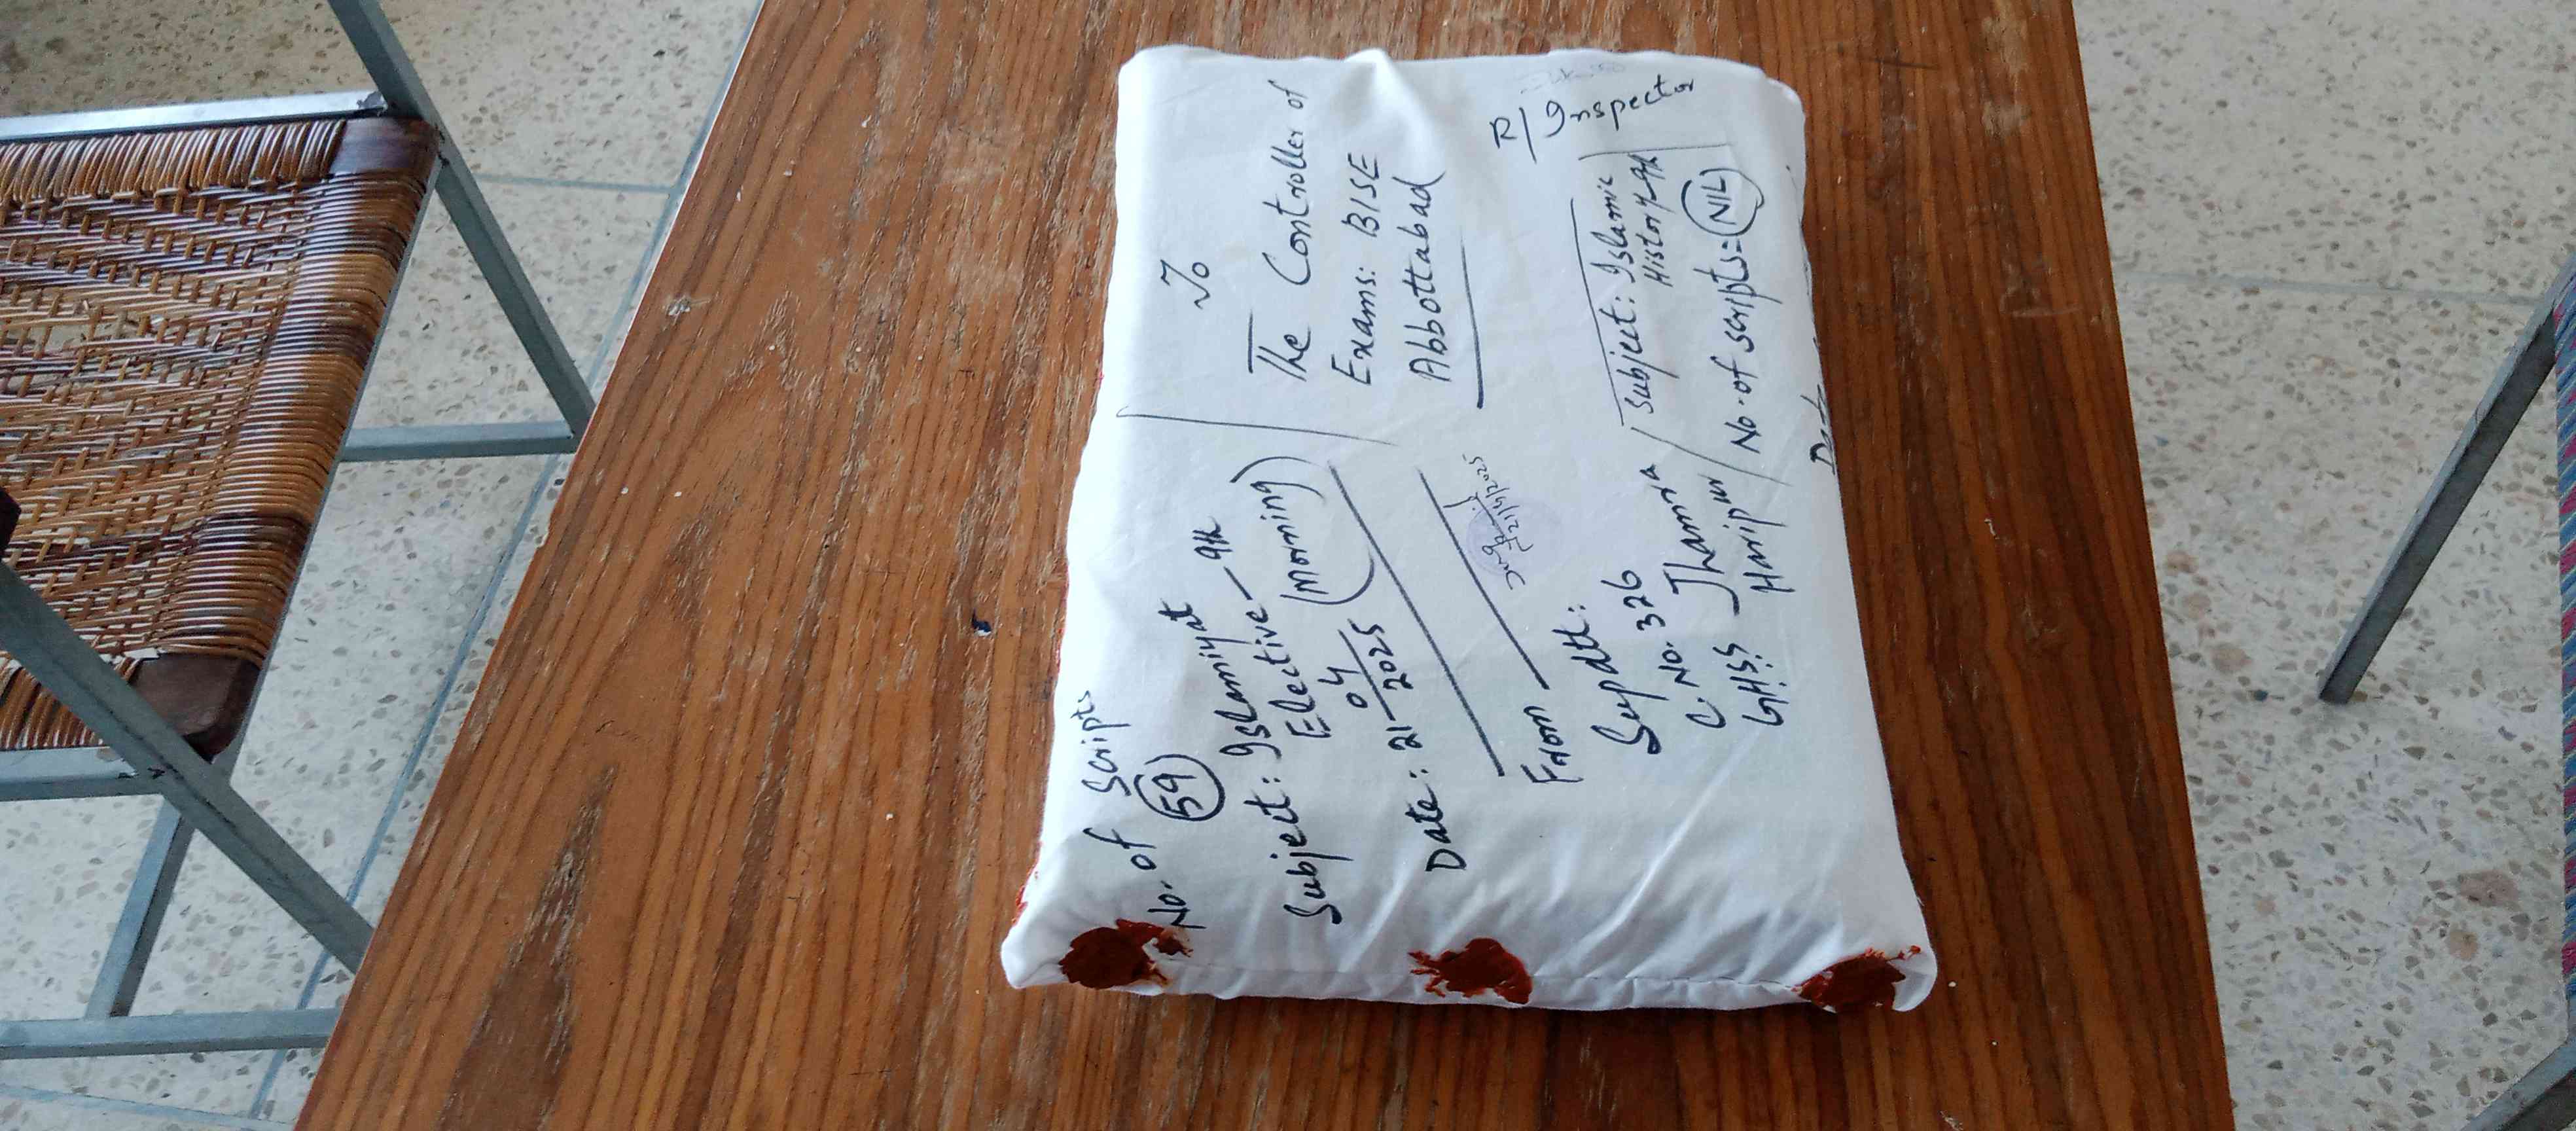 No. of Scripts
59
Subject: Islamiyat
Elective - 9th
(Morning)
Date: 21-04/2025
To
The Controller of
Exams: BISE
Abbottabad
R/Inspector
From
Supdtt:
C. No. 326
GHSS Jhamra
Haripur
21/4/2025
Subject: Islamic
History-9th
No. of scripts = NIL